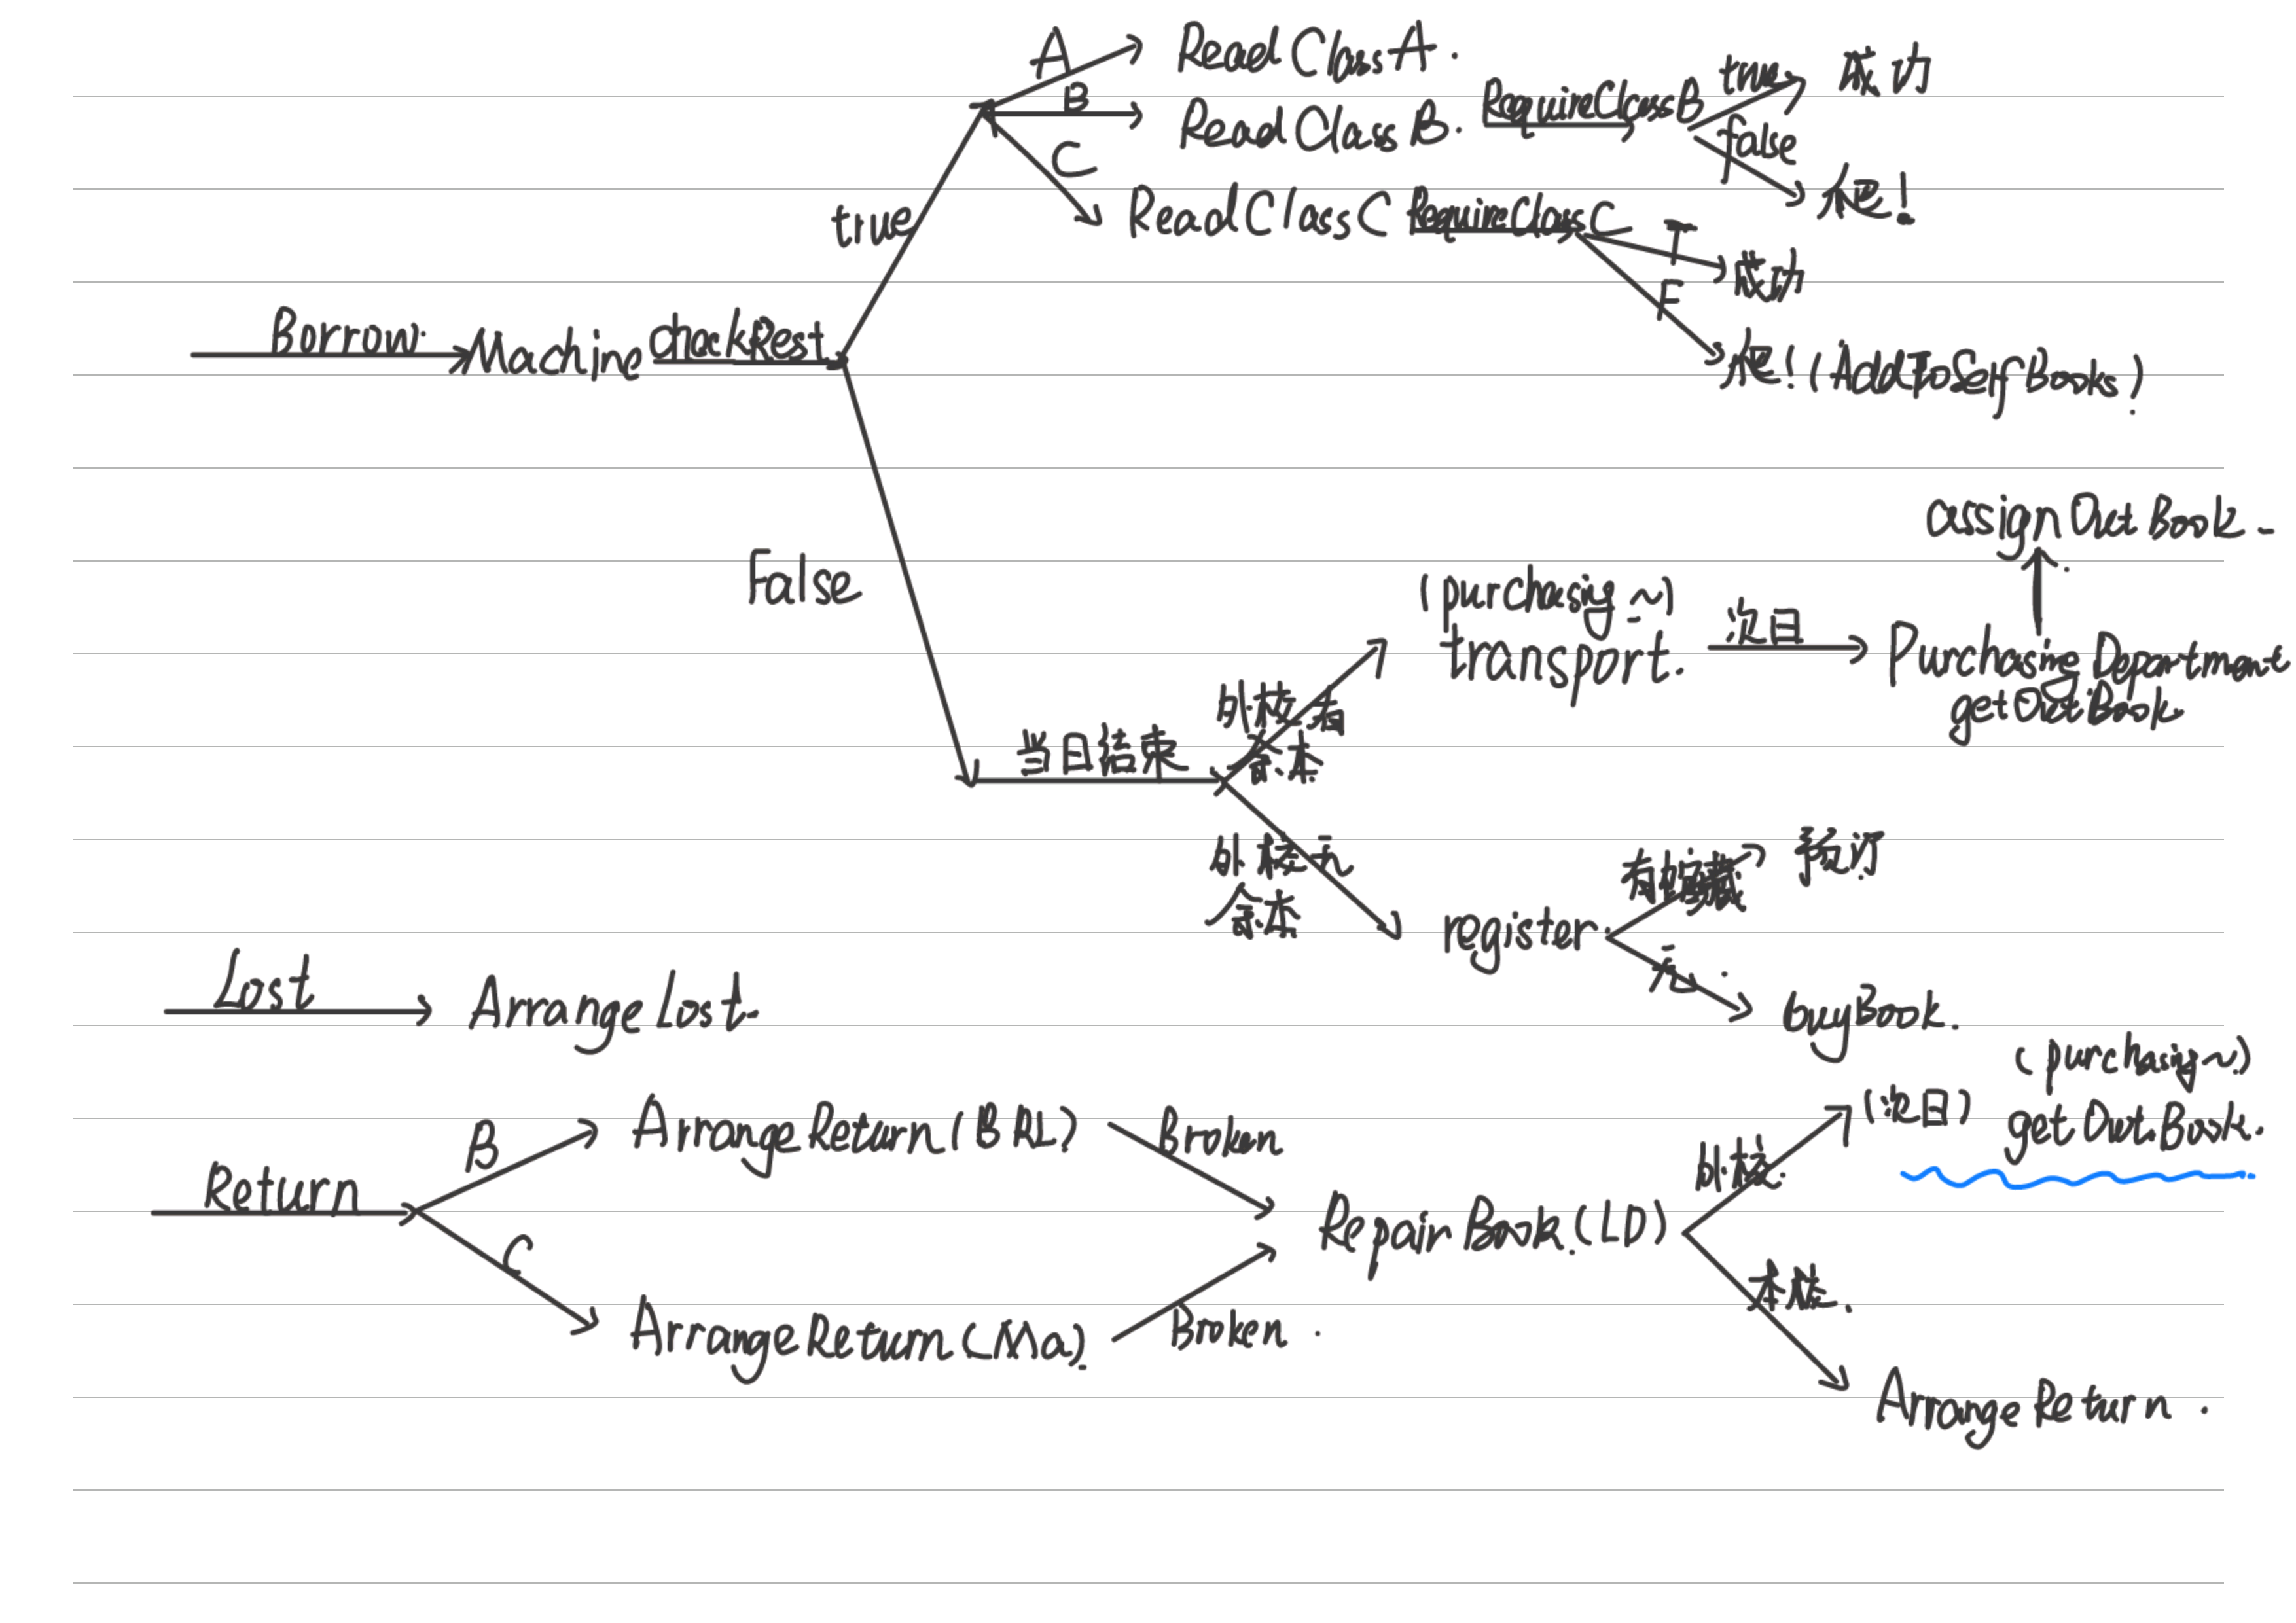 A
ReadClassA.
B
ReadClassB. RequireClassB
true 成功
false
C
ReadClassC RequireClassC
T 成功
F
(AddToSelfBooks)
true
Borrow. Machine checkRest
False
当日结束
外校有
余本
(purchasing~)
transport.
次日
PurchasingDepartment
getOutBook
assignOutBook
外校无
余本
register.
有馆藏 预订
无.
buyBook.
Lost ArrangeLost.
Return
B
ArrangeReturn(BRL)
Broken
C
ArrangeReturn(Ma)
Broken.
RepairBook.(LD)
外校.
(次日)
(purchasing~)
getOutBook.
本校.
ArrangeReturn.